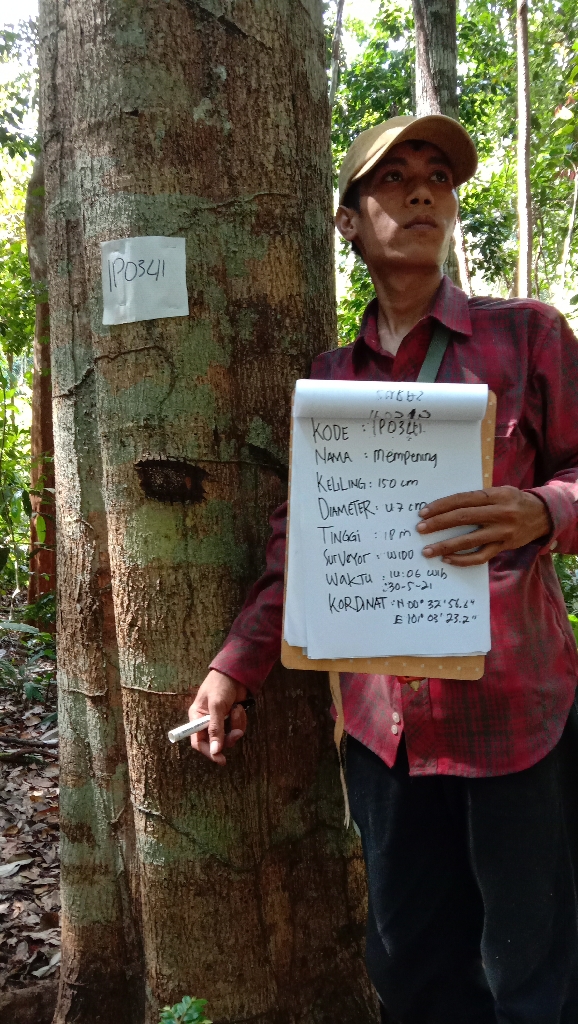 1P0341
KODE : 1P0341.
NAMA : Mempening
KELILING : 150 cm
DIAMETER : 47 cm
TINGGI : 18 m
SURVEYOR : WIDO
WAKTU : 14:06 WIB
:30-5-21
KORDINAT : N 00° 32' 56.6"
E 101° 03' 23.2"